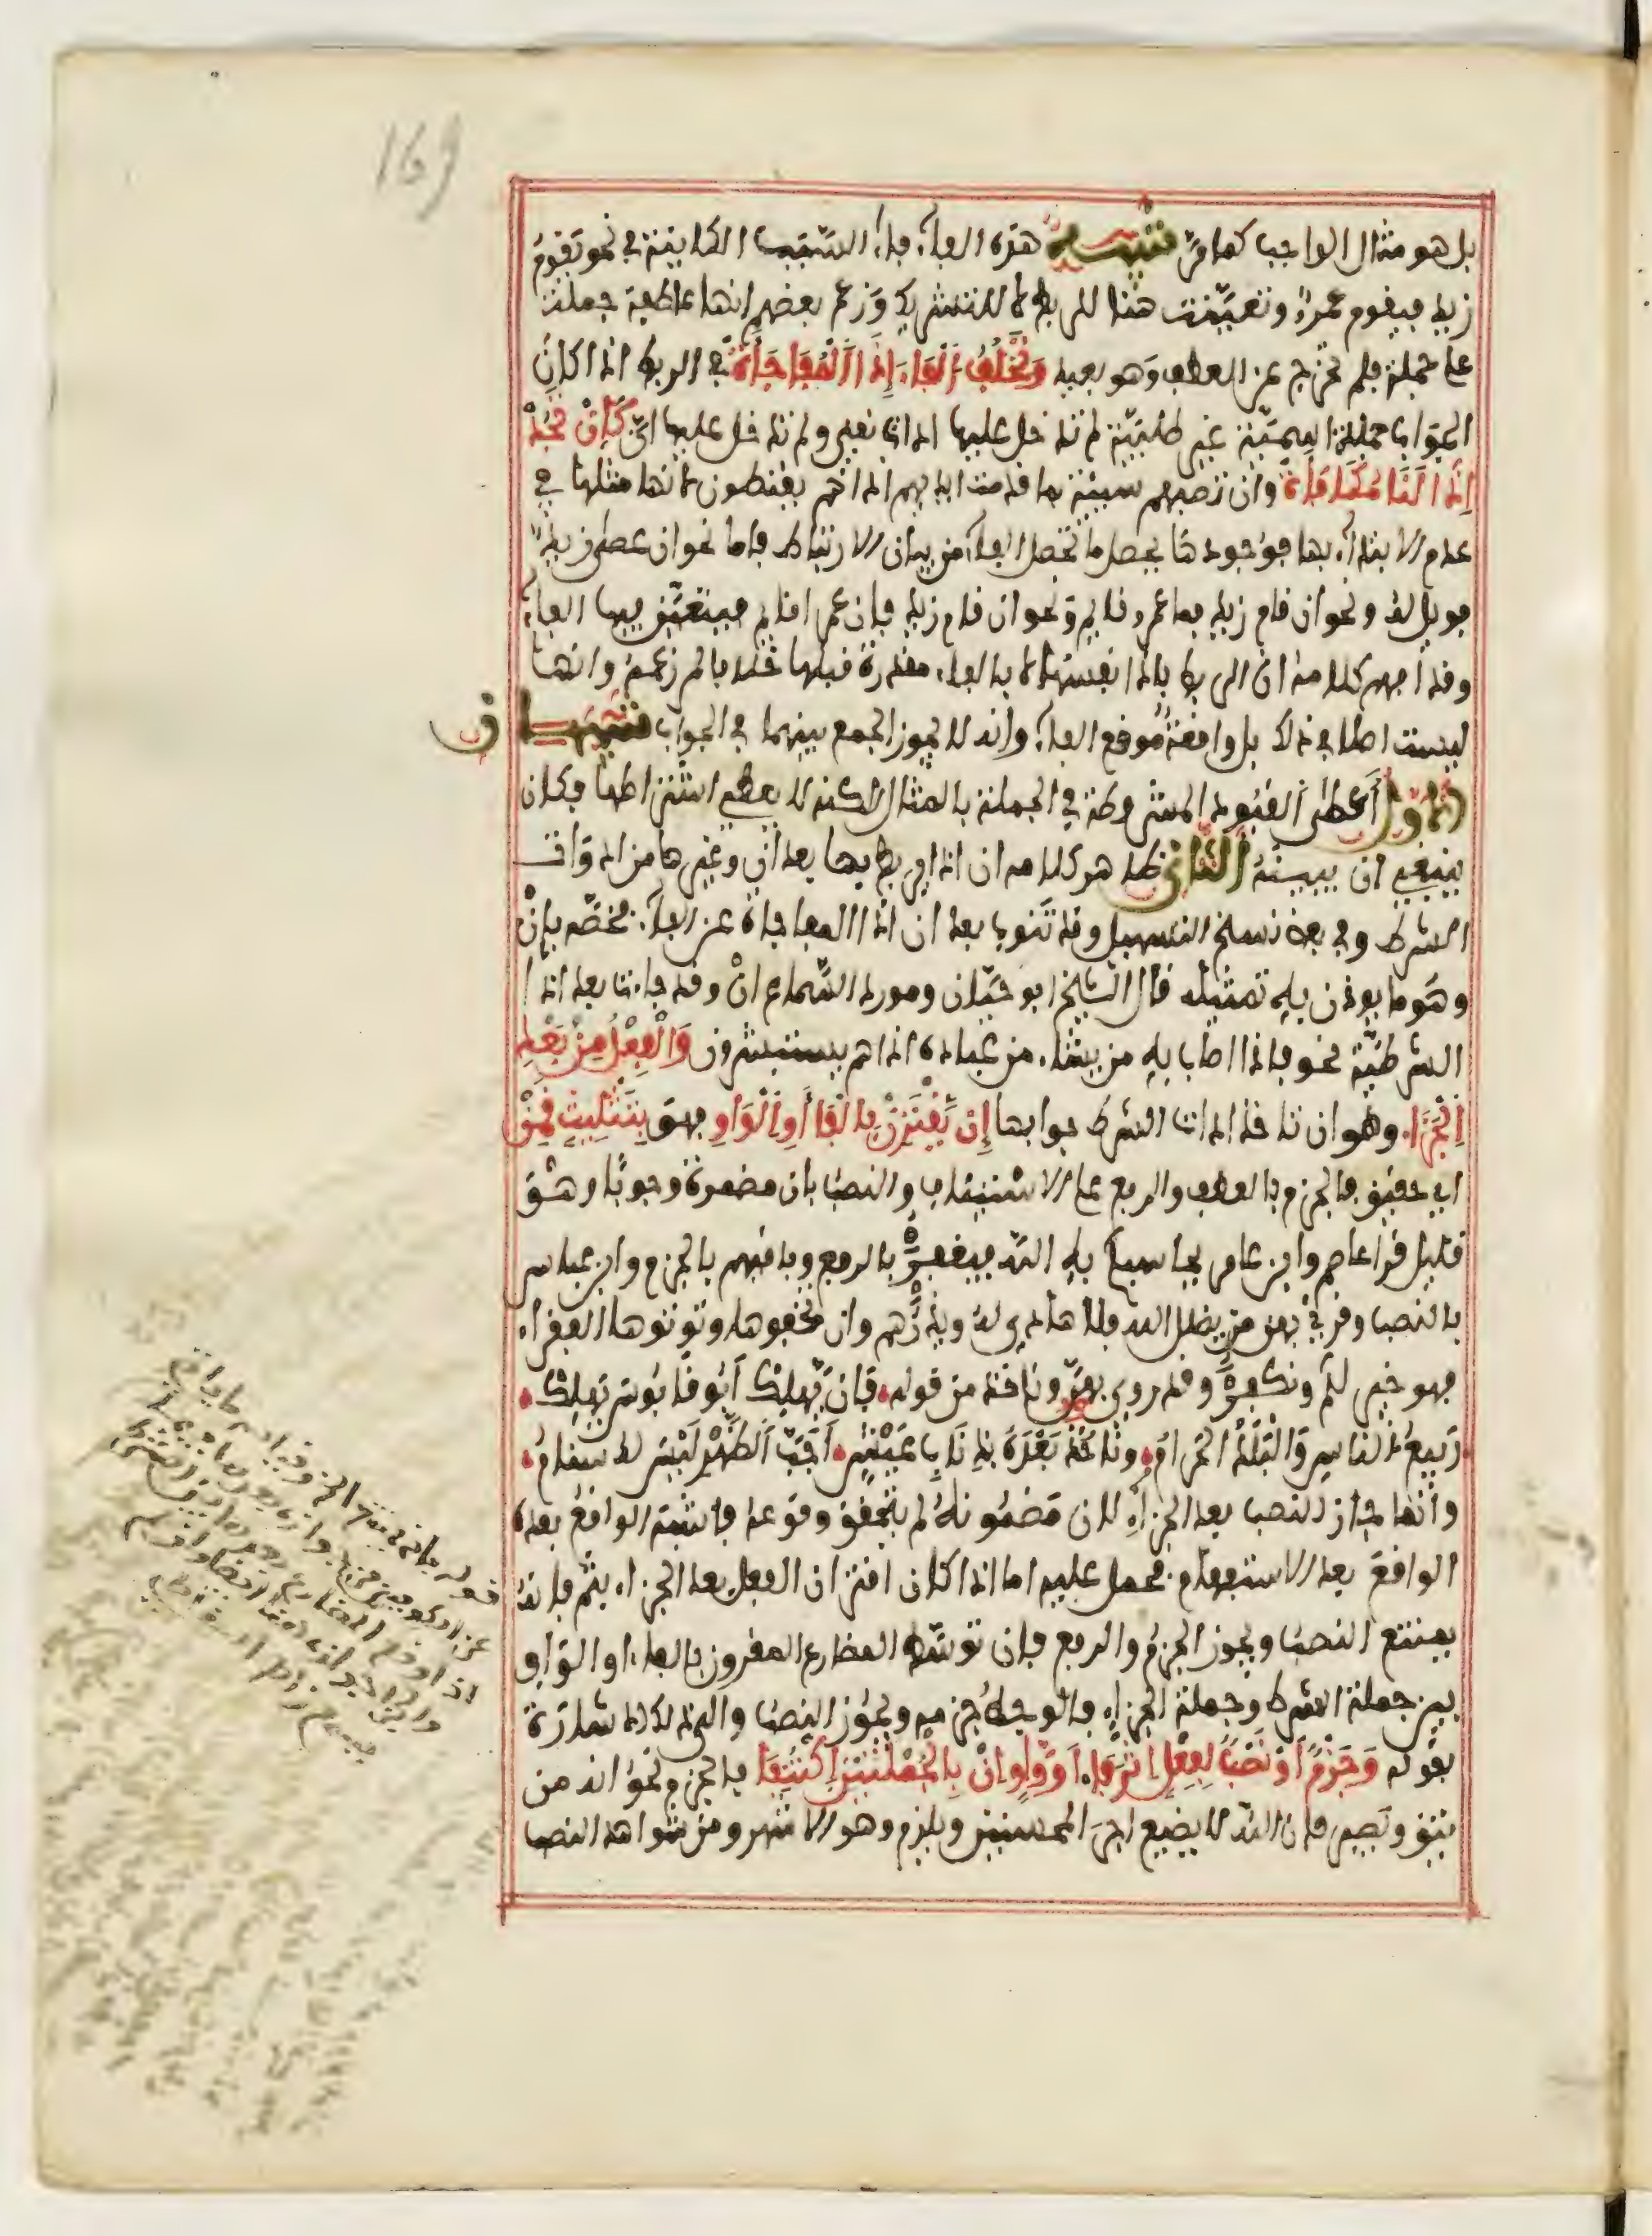 169
بل هو مثال الواجب كما مر تنبيه هذه الفاء فاء السبب الكاينة في نحو تقوم
زيد فيقوم عمرو وتعينت هنا للربط لا للتشريك وزعم بعضهم انها عاطفة جملة
على جملة فلم تخرج عن العطف وهو بعيد وَتَخْلُفُ الْفَاءَ إِذَا الْمُفَاجَأَةْ في الربط اذا كان
الجواب جملة اسمية غير طلبية لم تدخل عليها اداة نفي ولم تدخل عليها انّ كَإِنْ تَجُدْ
إِذًا لَنَا مُكَافَأَةْ وان تصبهم سيئة بما قدمت ايديهم اذا هم يقنطون لانها مثلها في
عدم الابتداء بها فوجودها يحصل ما تحصل الفاء من بيان الارتباط فاما نحو ان عصى زيد
فويل له ونحو ان قام زيد فما عمرو قايم ونحو ان قام زيد فان عمرا قايم فيتعين فيها الفاء
وقد افهم كلامه ان الربط باذا نفسها لا بالفاء مقدرة قبلها خلافا لمن زعمه وانها
ليست اصلا في ذلك بل واقعة موقع الفاء وانه لا يجوز الجمع بينهما في الجواب تنبيهان
الاول أعطى القيود المشروطة في الجملة بالمثال لكنه لا يعطي اشتراطها فكان
ينبغي ان يبينه الثاني ظاهر كلامه ان اذا يربط بها بعد ان وغيرها من ادوات
الشرط وفي بعض نسخ التسهيل وقد تنوب بعد ان اذا المفاجاة عن الفاء فخصه بإنْ
وهو ما يوذن به تمثيله قال الشيخ ابو حيان ومورد السماع انْ وقد جاءت بعد اذا
الشرطية نحو فاذا اصاب به من يشاء من عباده اذا هم يستبشرون وَالْفِعْلُ مِنْ بَعْدِ
الْجَزَا وهو ان تاخذ اداة الشرط جوابها إِنْ يَقْتَرِنْ بِالْفَا أَوِ الْوَاوِ فهو بِتَثْلِيثٍ قَمِنْ
اي حقيق فالجزم بالعطف والرفع على الاستيناف والنصب بان مضمرة وجوبا وهو
قليل قرا عاصم وابن عامر يحاسبكم به الله فيغفرُ بالرفع وباقيهم بالجزم وابن عباس
بالنصب وقري بهن من يضلل الله فلا هادي له ويذرهم وان تخفوها وتوتوها الفقراء
فهو خير لكم ونكفر وقد روي بهن وناخذ من قوله فَإِنْ يَهْلِكْ أَبُو قَابُوسَ يَهْلِكْ
رَبِيعُ النَّاسِ وَالْبَلَدُ الْحَرَامُ وَنَأْخُذ بَعْدَهُ بِذِنَابِ عَيْشٍ أَجَبِّ الظَّهْرِ لَيْسَ له سنام
وانما جاز النصب بعد الجزاء لان مضمونه لم يتحقق وقوعه فاشبه الواقع بعده
الواقع بعد الاستفهام فحمل عليه اما اذا كان اقتران الفعل بعد الجزاء بثم فانه
يمتنع النصب ويجوز الجزم والرفع فان توسط المضارع المقرون بالفاء او الواو
بين جملة الشرط وجملة الجزاء فالوجه جزمه ويجوز النصب والى ذلك الاشارة
بقوله وَجَزْمٌ أَوْ نَصْبٌ لِفِعْلٍ إِثْرَ فَا أَوْ وَاوٍ انْ بِالْجُمْلَتَيْنِ اكْتُنِفَا فالجزم نحو انه من
يتق ويصبر فان الله لا يضيع اجر المحسنين ويلزم وهو الاشهر ومن شواهد النصب